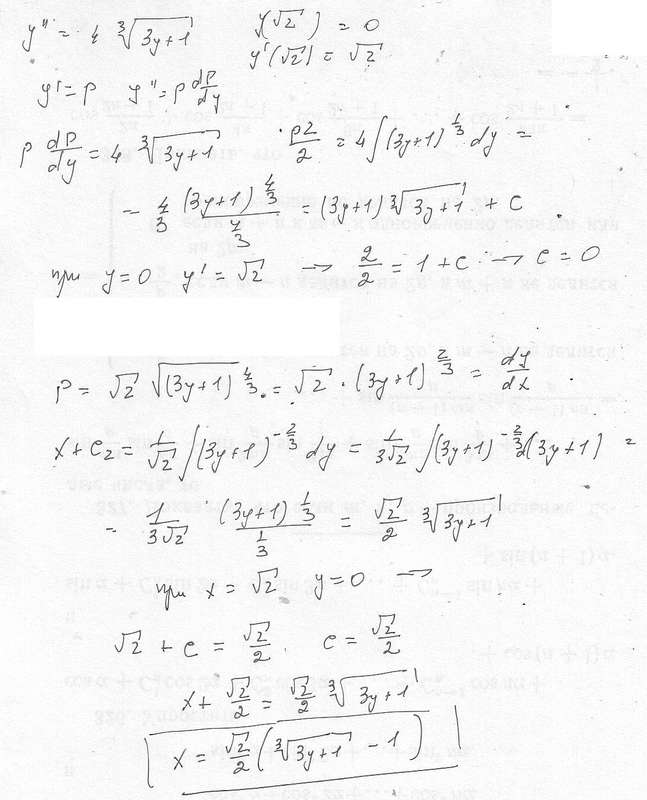 y'' = 4 ∛(3y+1)   y(√2) = 0
y'(√2) = √2
y' = p   y'' = p dp/dy
p dp/dy = 4 ∛(3y+1)   p²/2 = 4∫(3y+1)^(1/3) dy =
= 4/3 (3y+1)^(4/3) / (4/3) = (3y+1) ∛(3y+1) + C
при y=0 y' = √2 → 2/2 = 1+C → C = 0
p = √2 √(3y+1)^(4/3) = √2 · (3y+1)^(2/3) = dy/dx
x + C₂ = 1/√2 ∫(3y+1)^(-2/3) dy = 1/(3√2) ∫(3y+1)^(-2/3) d(3y+1) =
= 1/(3√2) (3y+1)^(1/3) / (1/3) = √2/2 ∛(3y+1)
при x = √2   y=0 →
√2 + C = √2/2   C = √2/2
x + √2/2 = √2/2 ∛(3y+1)
x = √2/2 (∛(3y+1) - 1)